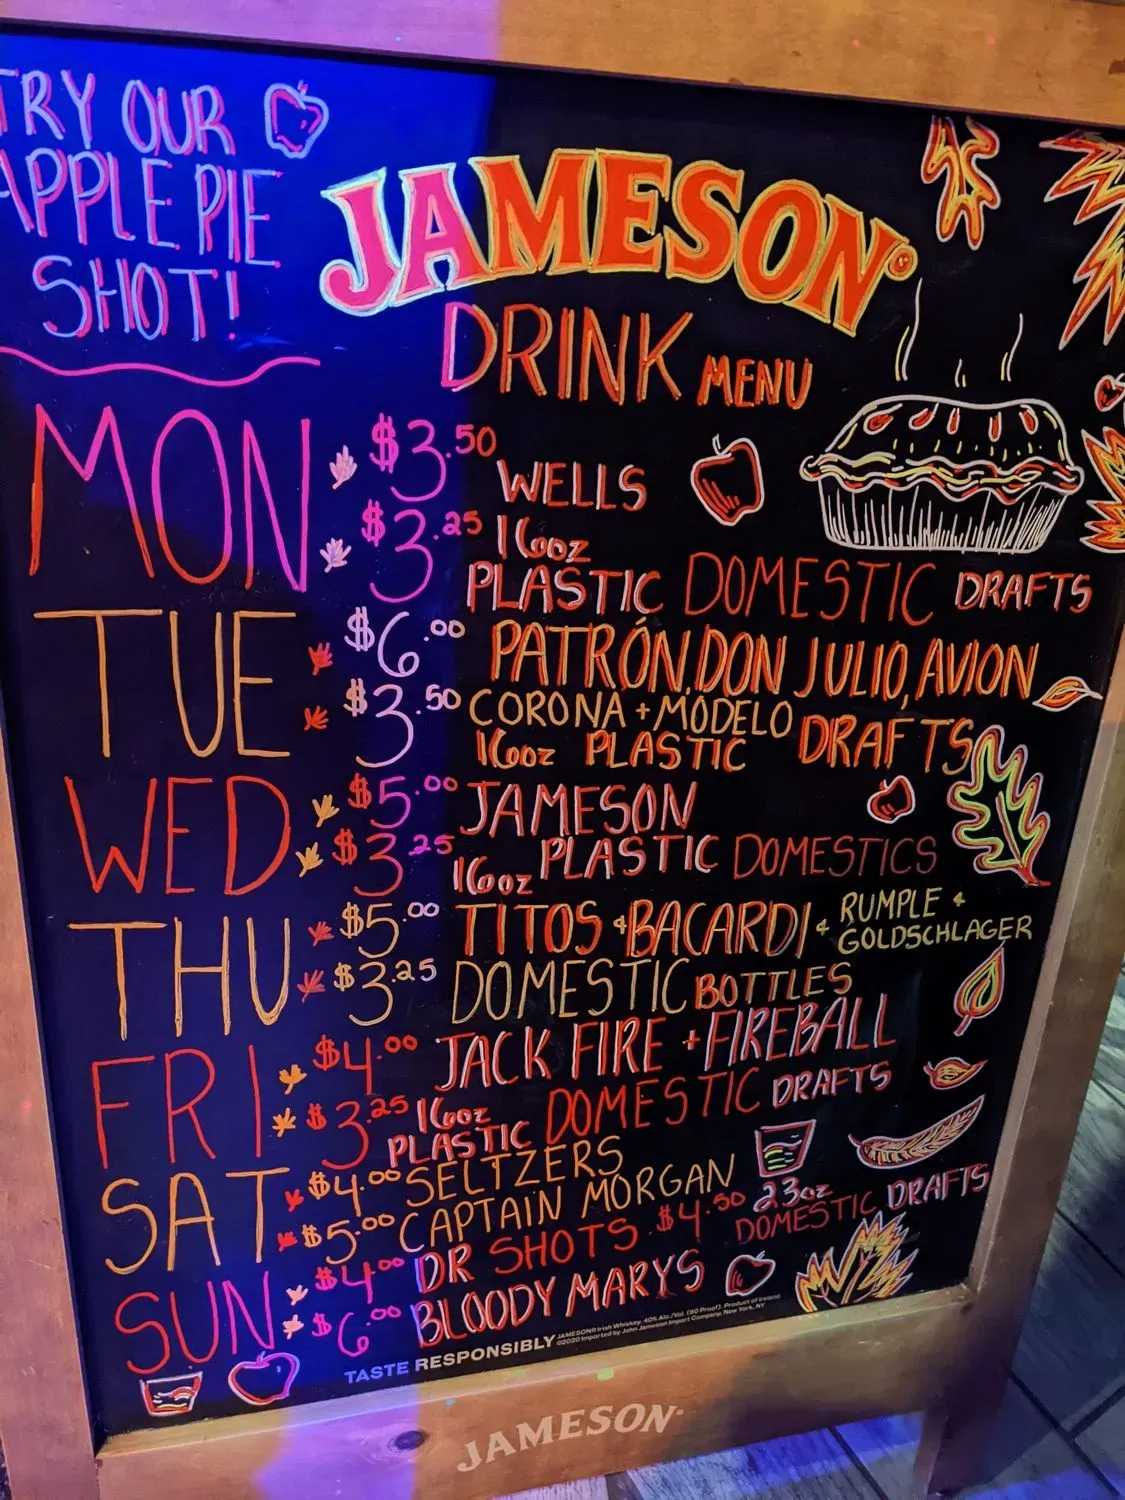 TRY OUR
APPLE PIE
SHOT!
JAMESON®
DRINK MENU
MON
$3.50 WELLS
$3.25 16oz
PLASTIC DOMESTIC DRAFTS
TUE
$6.00 PATRÓN, DON JULIO, AVION
$3.50 CORONA + MODELO
16oz PLASTIC DRAFTS
WED
$5.00 JAMESON
$3.25 16oz PLASTIC DOMESTICS
THU
$5.00 TITOS & BACARDI & RUMPLE &
GOLDSCHLAGER
$3.25 DOMESTIC BOTTLES
FRI
$4.00 JACK FIRE + FIREBALL
$3.25 16oz
PLASTIC DOMESTIC DRAFTS
SAT
$4.00 SELTZERS
$5.00 CAPTAIN MORGAN
SUN
$4.00 DR SHOTS $4.50 23oz
DOMESTIC DRAFTS
$6.00 BLOODY MARYS
TASTE RESPONSIBLY
JAMESON® Irish Whiskey. 40% Alc./Vol. (80 Proof). Product of Ireland.
©2020 Imported by John Jameson Import Company, New York, NY
JAMESON